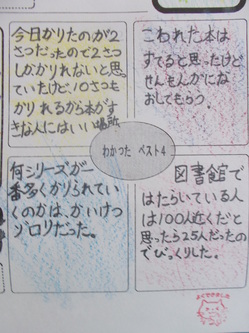 今日かりたのが2
さつだったので2さつ
しかかりれないと思っ
ていたけど、10さつも
かりれるから本がす
きな人にはいい場所
こわれた本は
すてると思ったけど、
せんもんかにな
おしてもらう
わかった ベスト4
何シリーズが一
番多くかりられてい
くのかは、かいけつ
ゾロリだった。
図書館で
はたらいている人
は100人近くだと
思ったら25人だったの
でびっくりした。
よくできました